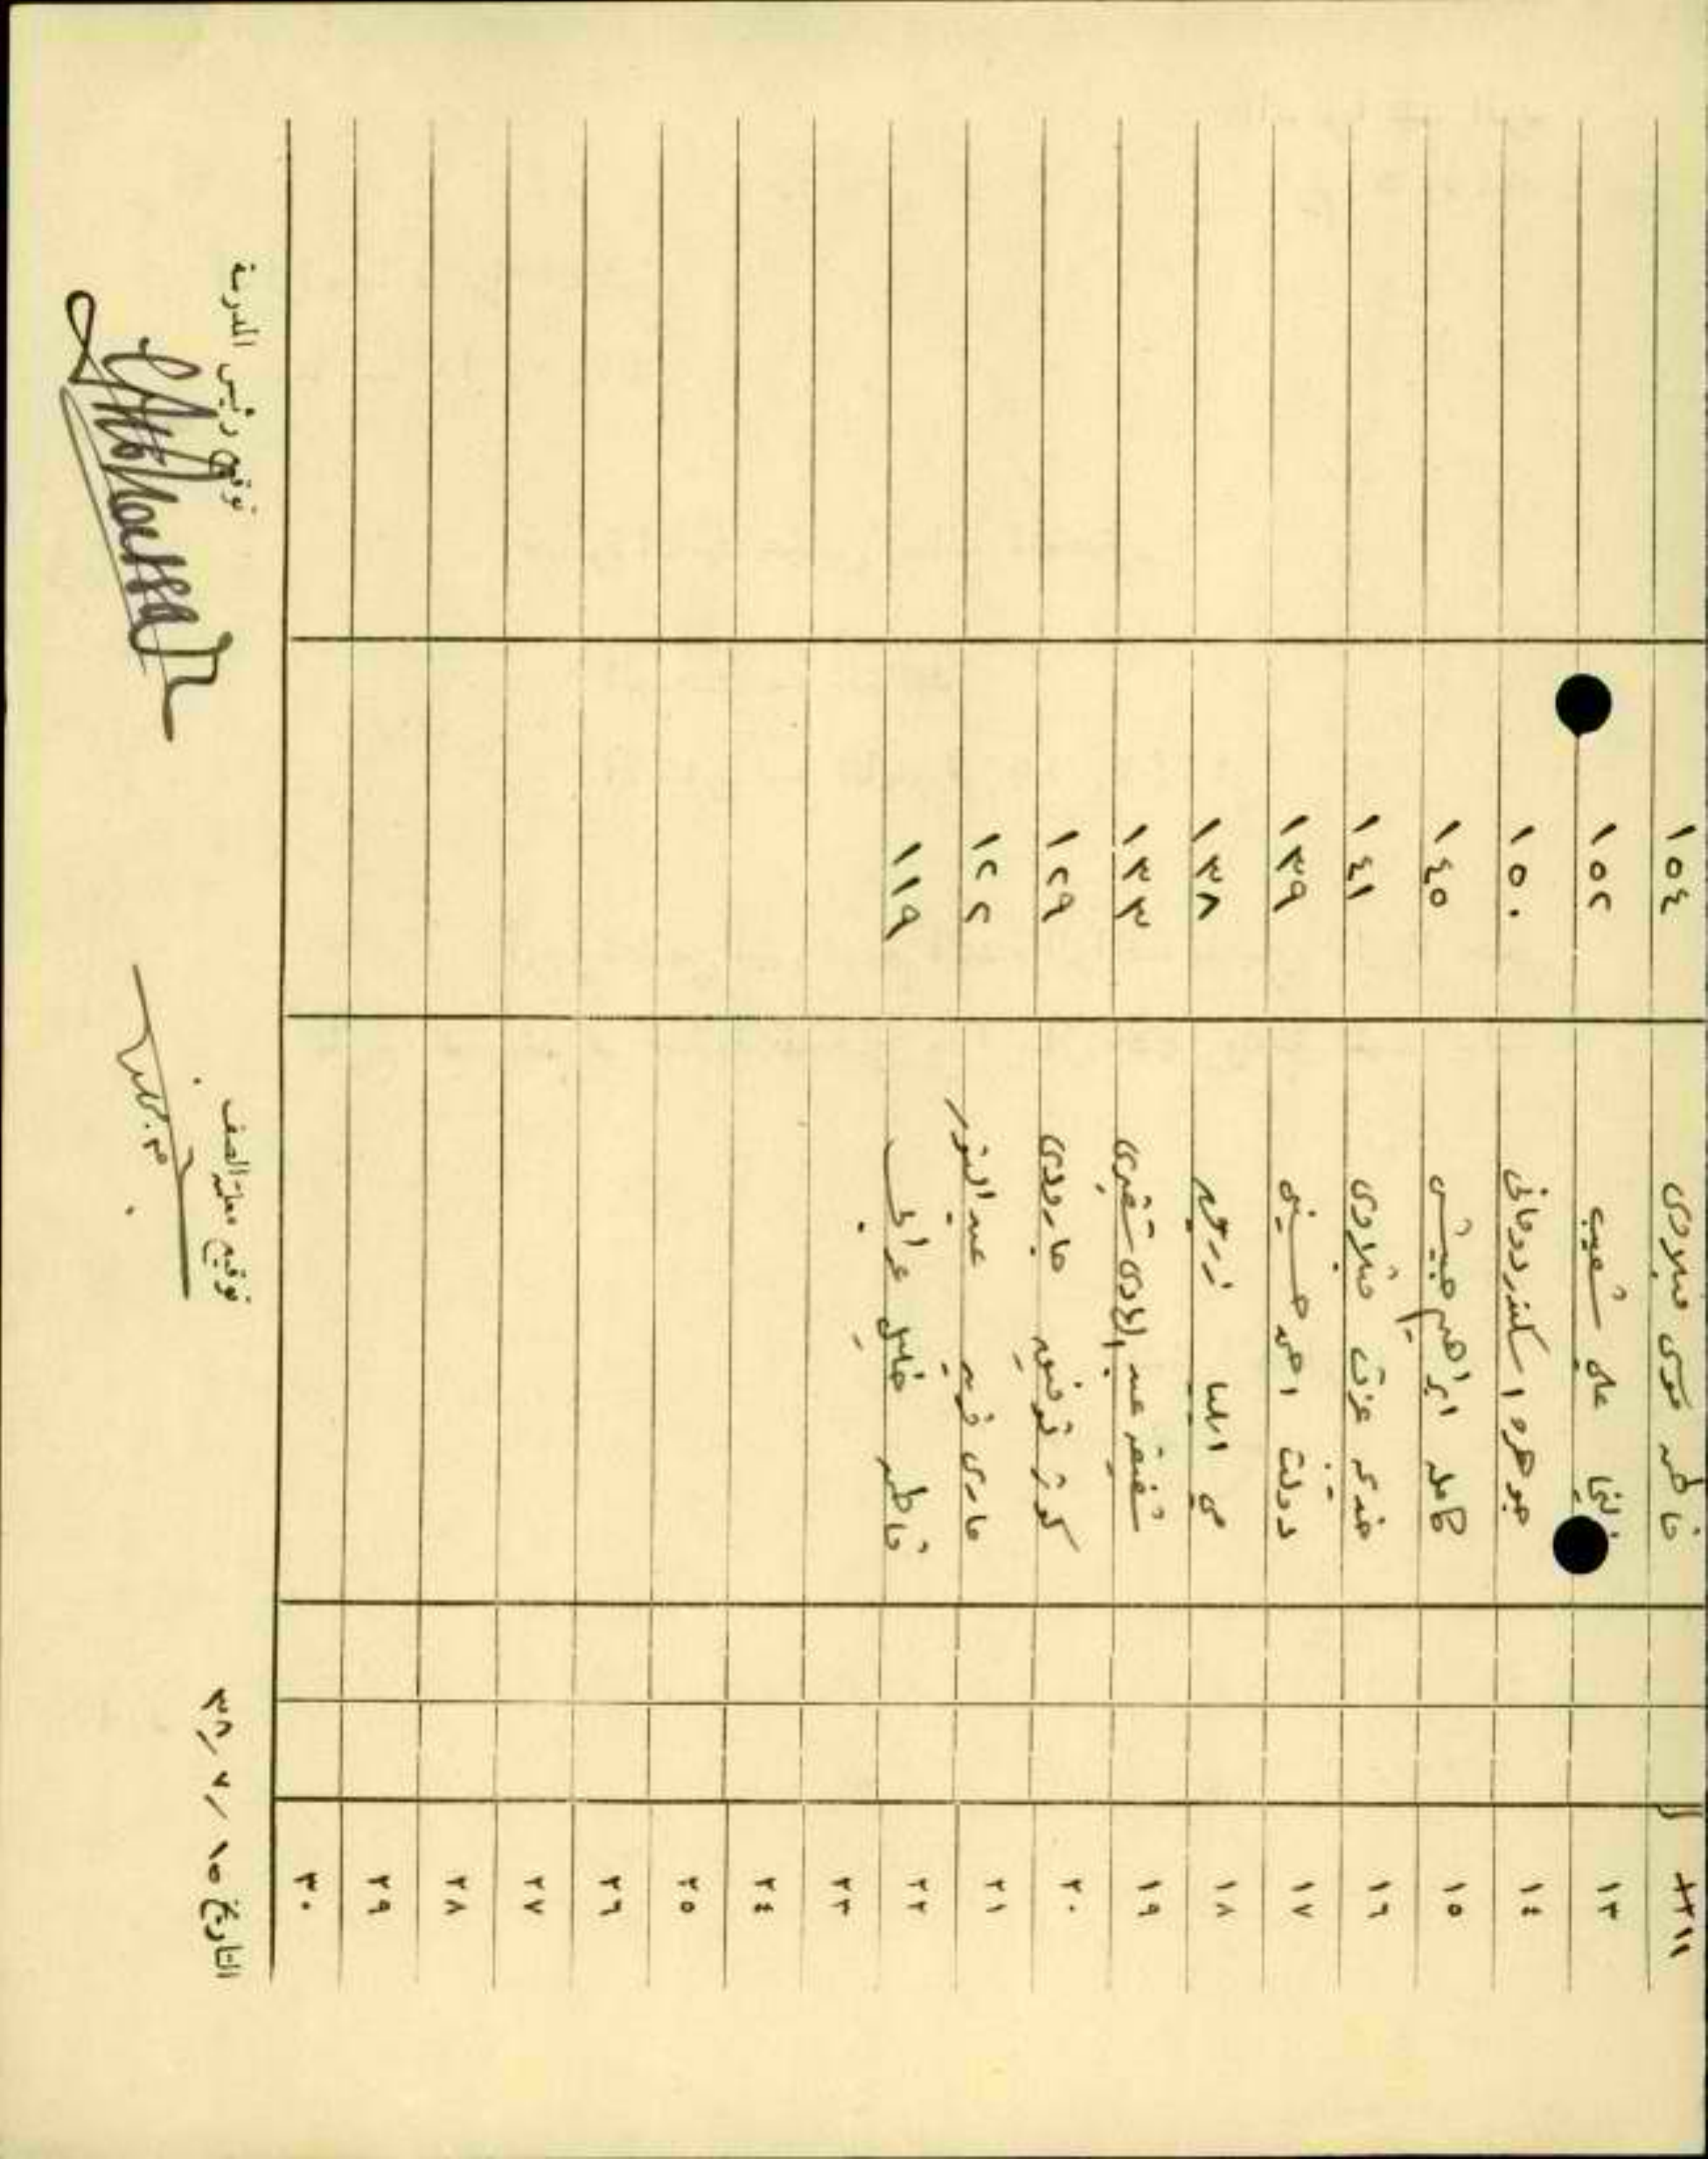 ١٢ فاطمه موسى صلاوى ١٥٤
١٣ علي شعيب ١٥٢
١٤ جوهره اسكندر روحانى ١٥٠
١٥ كامله ابراهيم حبيشى ١٤٥
١٦ عزت صلاوى ١٤١
١٧ دولت احمد حسينى ١٣٩
١٨ مي ايليا ١٣٨
١٩ شفيقه عبد الهادى شقيرى ١٣٣
٢٠ كوثر توفيق جارودى ١٢٩
٢١ مارى فريد عبد النور ١٢٢
٢٢ فاطمه خليل ١١٩
٢٣
٢٤
٢٥
٢٦
٢٧
٢٨
٢٩
٣٠
التاريخ ١٥ / ٧ / ٣٨ توقيع معلمة الصف توقيع رئيس المدرسة